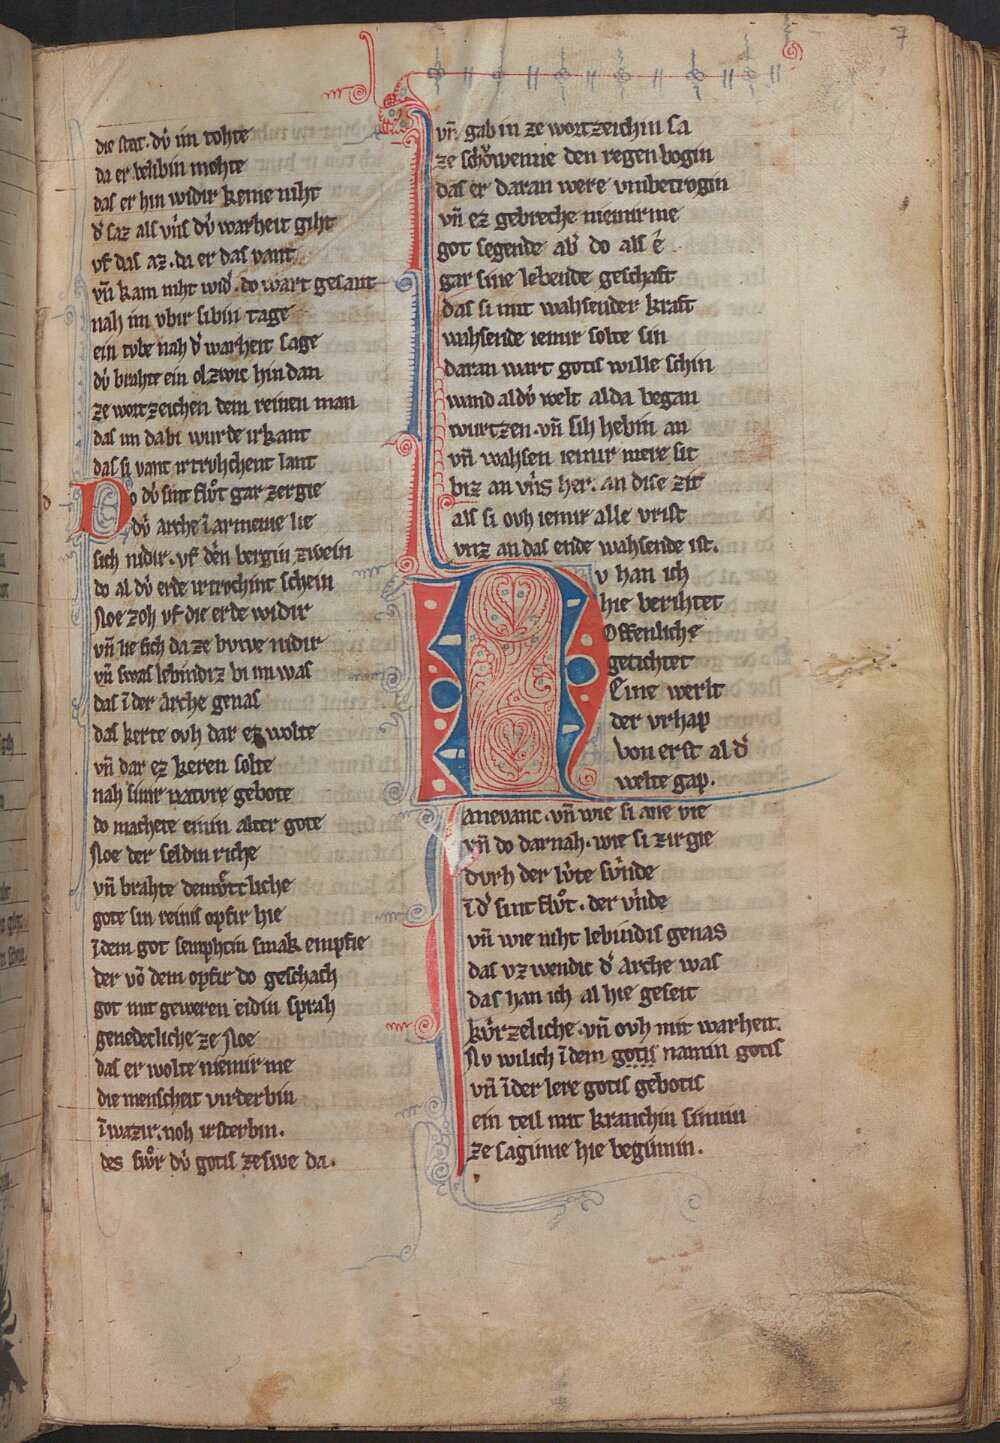 7
die stat. dv̍ im tohte
da er belibin mohte
das er hin widir keme niht
d̍ saz als vn̍s dv̍ warheit giht
vf das az. da er das vant
vn̄ kam niht wid̍. do wart gesant
nah im vbir sibin tage
ein tvbe nah d̍ warheit sage
dv̍ brahte ein olzwic hin dan
ze wortzeichen dem reinen man
das im da bi wurde irkant
das si vant irtrvhchent lant
Do dv̍ sint flůt gar zergie
dv̍ arche ī armenie lie
sich nidir. vf den bergin zwein
do al dv̍ erde irtrvchint schein
Noe zoh vf die erde widir
vn̄ lie sich da ze bvwe nidir
vn̄ swas lebindiz bi im was
das ī der arche genas
das kerte ovh dar ez wolte
vn̄ dar ez keren solte
nah sinir natvre gebote
do machete einin alter gote
Noe der seldin riche
vn̄ brahte demv̊tcliche
gote sin reinis opfir hie
ī dem got semphtin smak enpfie
der vō dem opfir do geschach
got mit geweren eidin sprah
genedecliche ze Noe
das er wolte niemir me
die menscheit virderbin
ī wazir. noh irsterbin.
des swůr dv̍ gotis zeswe da.
vn̄ gab in ze wortzeichin sa
ze schŏwenne den regen bogin
das er daran were vnbetrogin
vn̄ ez gebreche niemir me
got segende ab̍ do als ê
gar sine lebende geschaft
das si mit wahsender kraft
wahsende iemir solte sin
daran wart gotis wille schin
wand al dv̍ welt alda began
wurtzen. vn̄ sih hebin an
vn̄ wahsen iemir mere sit
biz an vn̍s her. an dise zit
als si ovh iemir alle vrist
vnz an das ende wahsende ist.
Nv han ich
hie berihtet
Offenliche
getichtet
Eine werlt
der vrhap
von erst al d̍
welte gap.
anevanc. vn̄ wie si ane vie
vn̄ do darnah. wie si zirgie
dvrh der lv̍te sv̍nde
ī d̍ sint flůt. der vn̍de
vn̄ wie niht lebindis genas
das vzwendic d̍ arche was
das han ich al hie geseit
kv̍rzeliche. vn̄ ovh mit warheit.
Nv wil ich ī dem gotis namin gotis
vn̄ ī der lere gotis gebotis
ein teil mit kranchin sinnin
ze saginne hie beginnin.